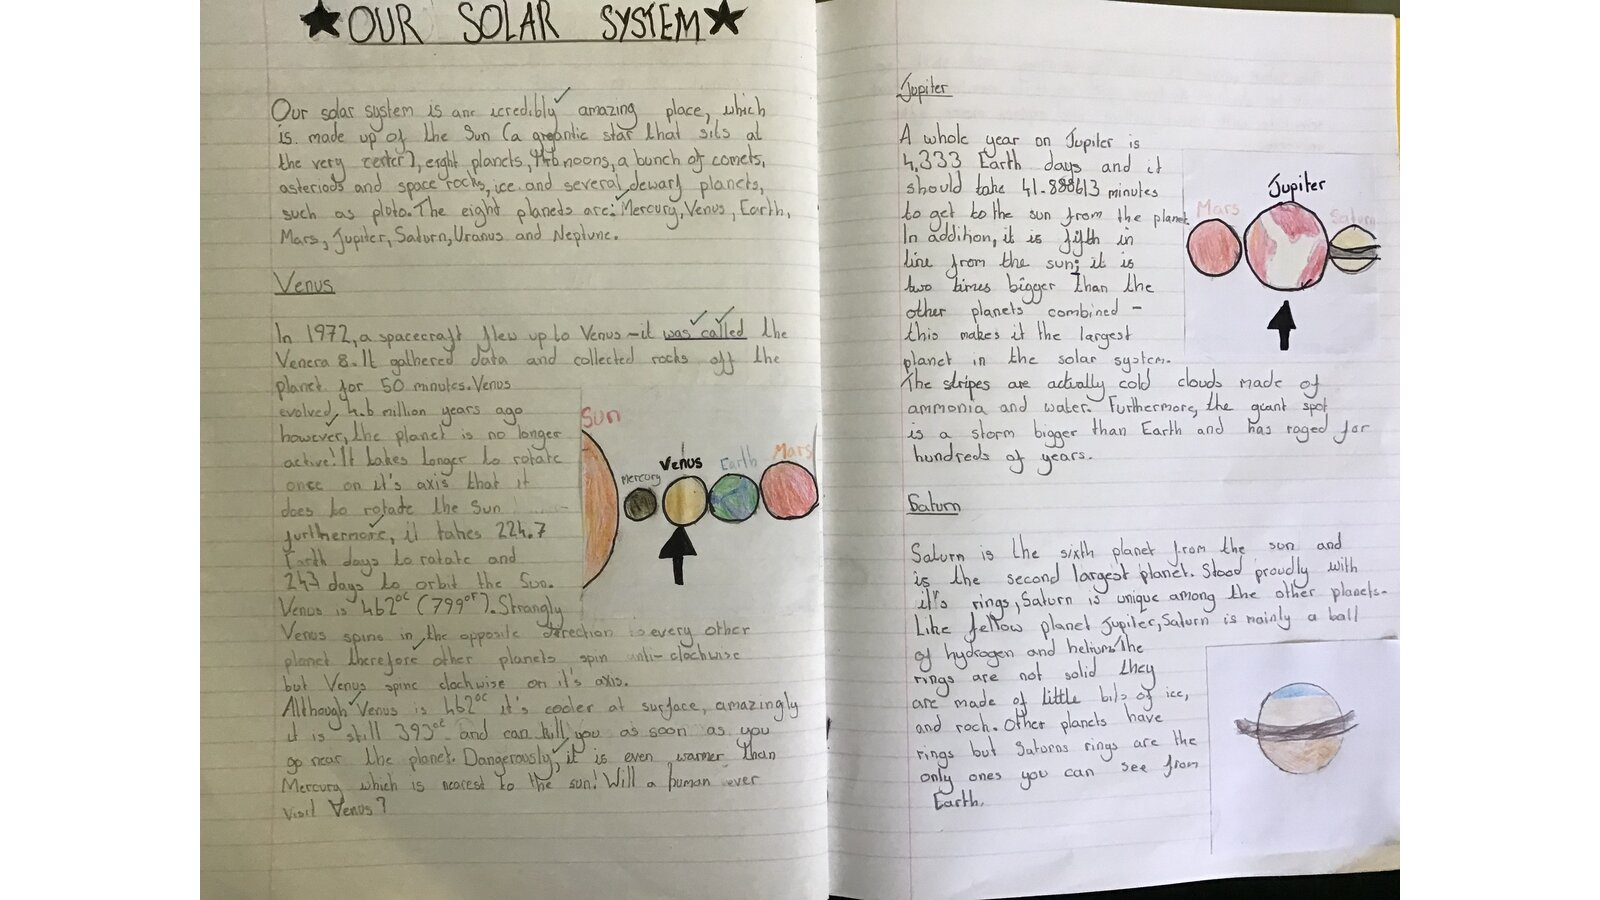 ★OUR SOLAR SYSTEM★
Our solar system is anc icredibly amazing place, which
is made up of the Sun (a argantic star that sits at
the very center), eight planets, 146 noons, a bunch of comets,
asteriods and space rocks, ice and several dewarf planets,
such as ploto. The eight planets are: Mercury, Venus, Earth,
Mars, Jupiter, Saturn, Uranus and Neptune.
Venus
In 1972, a spacecraft flew up to Venus – it was called the
Venera 8. It gathered data and collected rocks off the
planet for 50 minutes. Venus
evolved 4.6 million years ago
however, the planet is no longer
active! It takes longer to rotate
once on it's axis that it
does to rotate the Sun
furthermore, it takes 224.7
Earth days to rotate and
243 days to orbit the Sun.
Venus is 462°C (799°F). Strangly
Venus spins in the opposite direction is every other
planet therefore other planets spin anti-clockwise
but Venus spinc clockwise on it's axis.
Although Venus is 462°C it's cooler at surface, amazingly
it is still 393°C and can kill you as soon as you
go near the planet. Dangerously, it is even warmer than
Mercury which is nearest to the sun! Will a human ever
visit Venus?
Sun
Mercury
Venus
Earth
Mars
Jupiter
A whole year on Jupiter is
4,333 Earth days and it
should take 41.888613 minutes
to get to the sun from the planet.
In addition, it is fifth in
line from the sun; it is
two times bigger than the
other planets combined –
this makes it the largest
planet in the solar system.
The stripes are actually cold clouds made of
ammonia and water. Furthermore, the giant spot
is a storm bigger than Earth and has raged for
hundreds of years.
Mars
Jupiter
Saturn
Saturn
Saturn is the sixth planet from the sun and
is the second largest planet. Stood proudly with
it's rings, Saturn is unique among the other planets.
Like fellow planet Jupiter, Saturn is mainly a ball
of hydrogen and helium. The
rings are not solid they
are made of little bits of ice,
and rock. Other planets have
rings but Saturns rings are the
only ones you can see from
Earth.